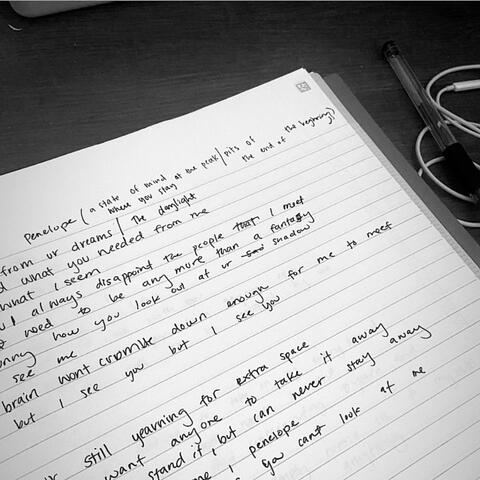 Penelope (a state of mind at the peak/pits of the beginning)
where you stay the end of
from ur dreams / the daylight
what you needed from me
what I seem
always disappoint the people that I meet
need to be any more than a fantasy
how you look out at ur shadow
see me
brain wont crumble down enough for me to meet
but I see you but I see you
still yearning for extra space
want anyone to take it away
stand it, but can never stay away
I penelope
you cant look at me